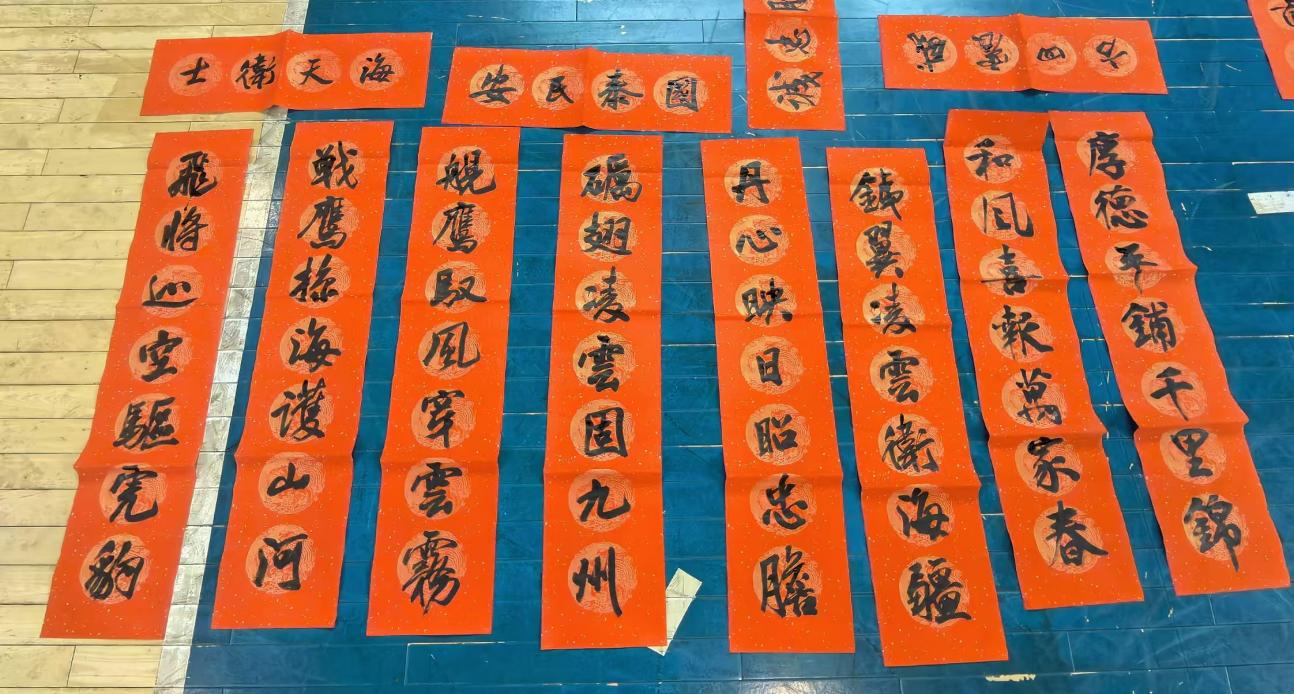 海天衛士
國泰民安
威震四方
厚德平鋪千里錦
和風喜報萬家春
鐵翼凌雲衛海疆
丹心映日昭忠膽
礪翅凌雲固九州
舰鷹馭風穿雲霧
戰鷹掠海護山河
飛將巡空驅虎豹